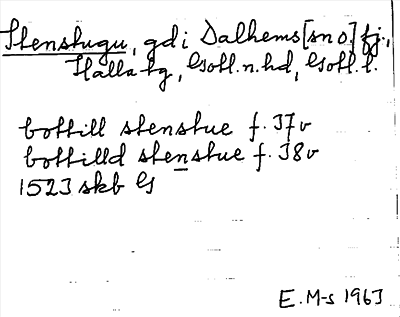 Stenstugu, gd i Dalhems [sn o.] fj.,
Halla tg, Gotl. n. hd, Gotl. l.
bottill stenstue f. 37v
bottilld stenstue f. 38v
1523 skb G
E. M-s 1963